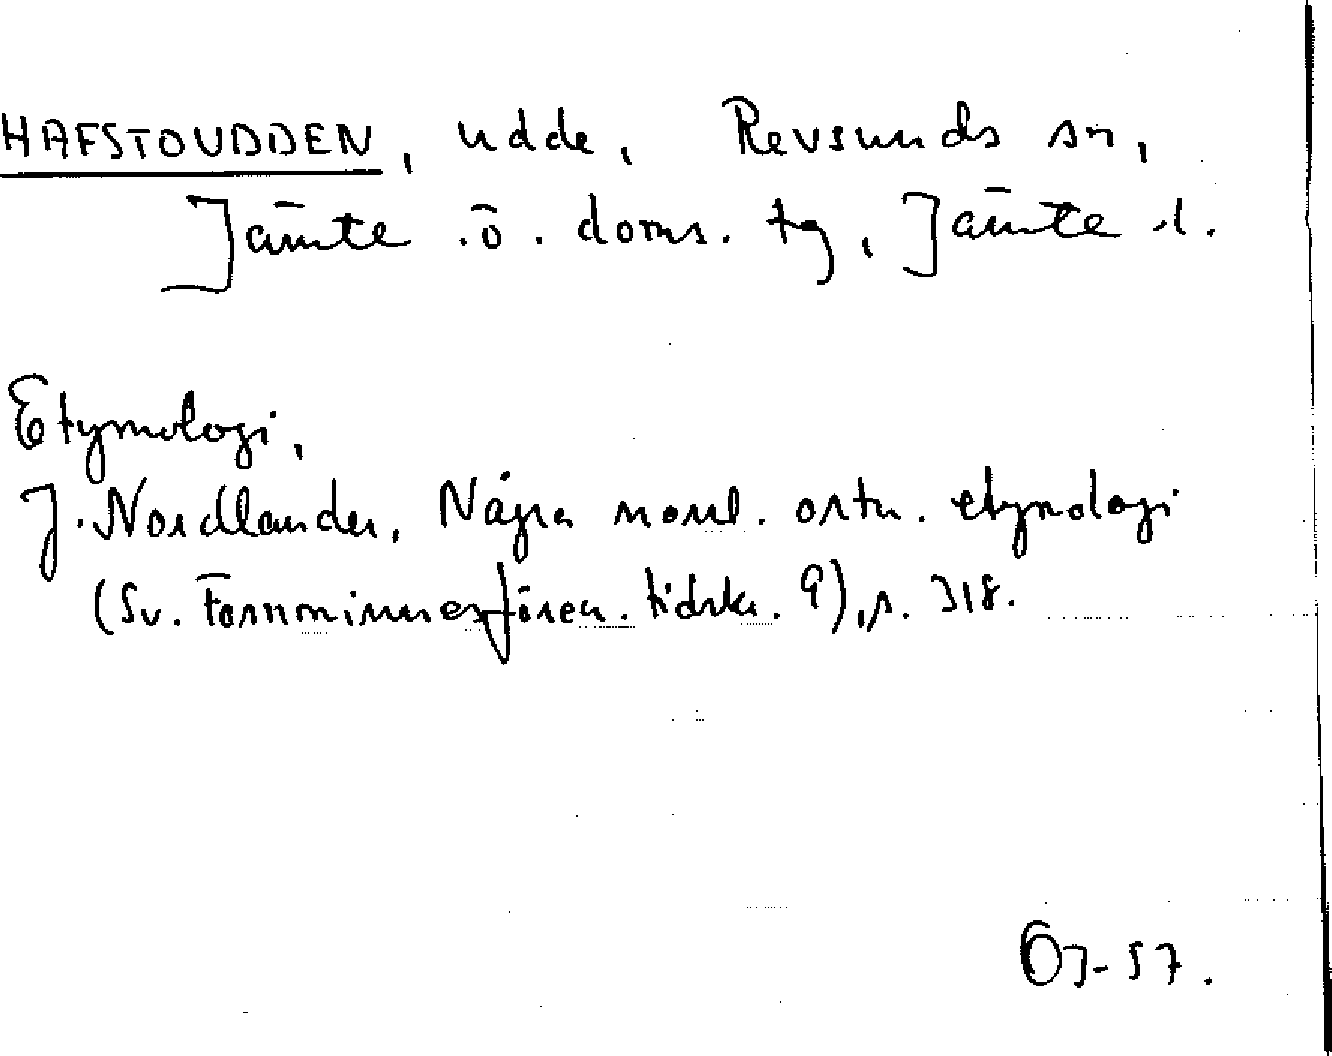 HAFSTOUDDEN, udde, Revsunds sn,
Jämte .ö. doms. tg, Jämte l.
Etymologi,
J. Nordlander, Några norrl. ortn. etymologi
(Sv. Fornminnesfören. tidskr. 9), s. 318.
ÖJ-57.